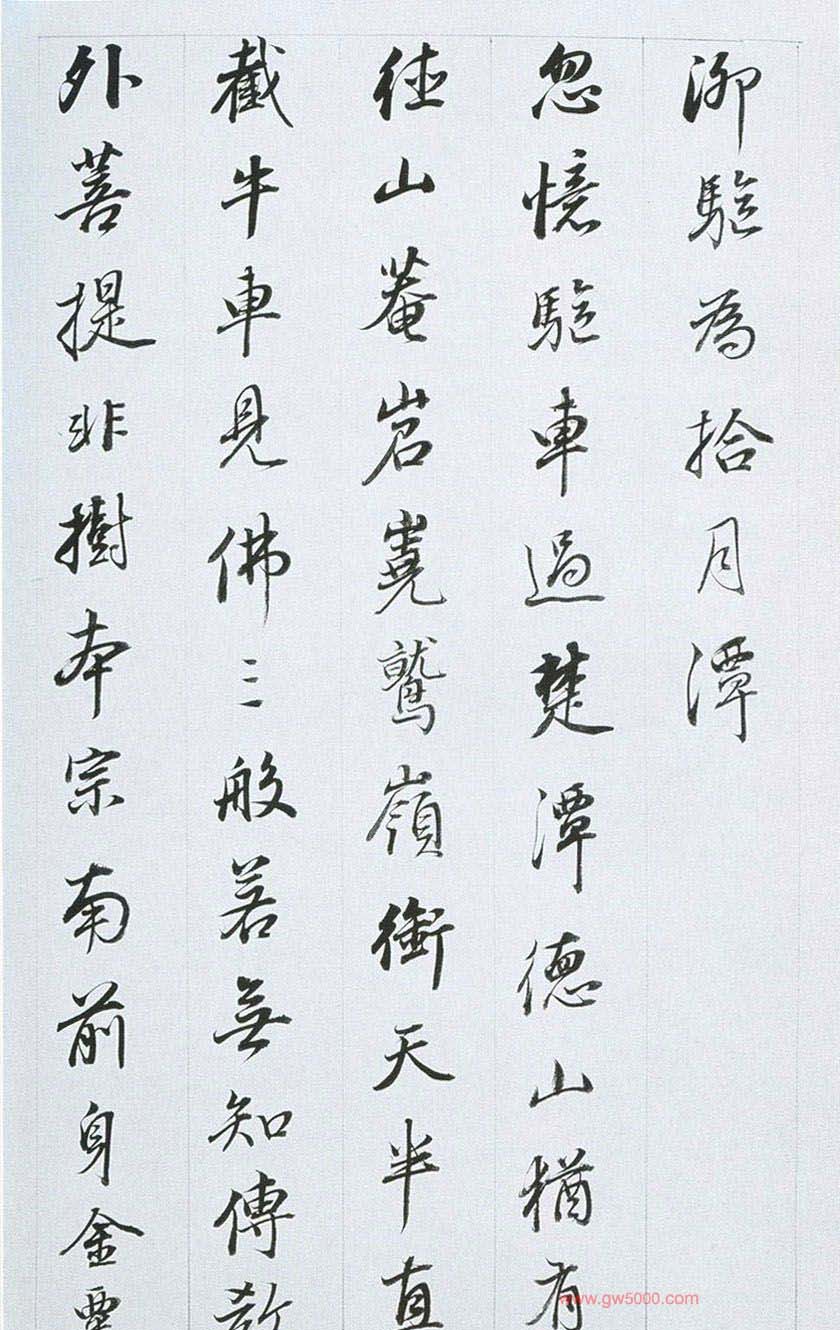 泖駞為拾月潭
忽憶駞車過楚潭德山猶有
徑山菴岩嶤鷲嶺銜天半直
截牛車見佛三般若無知傳教
外菩提非樹本宗南前身金粟
www.gw5000.com